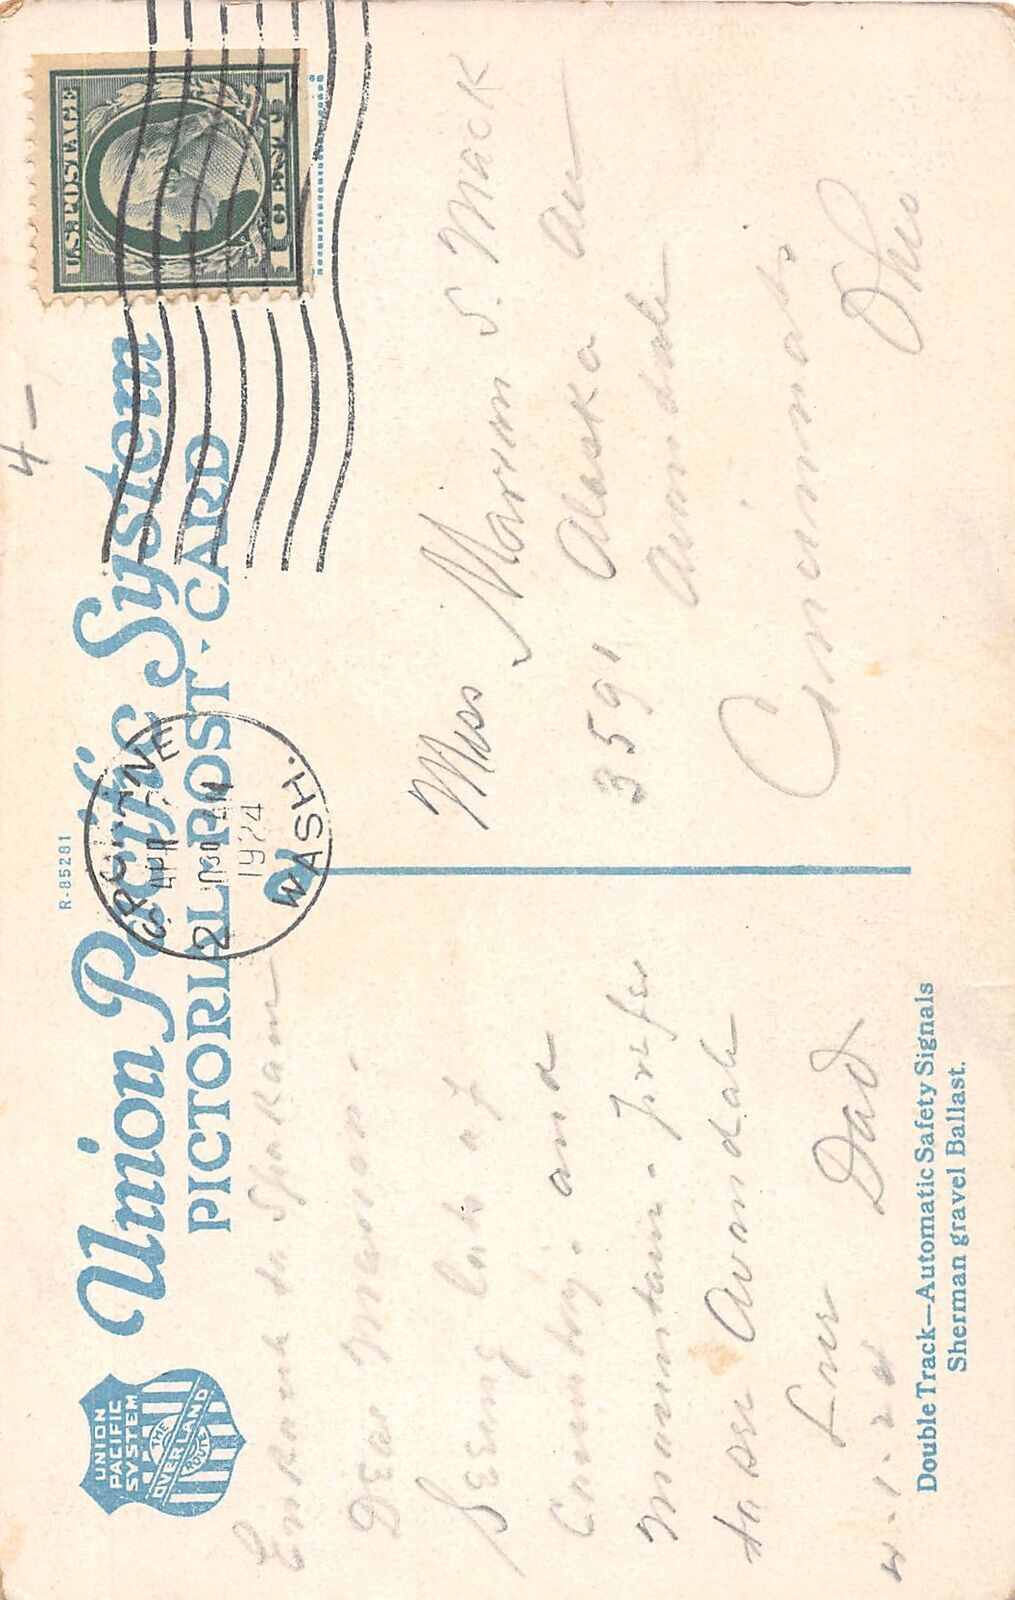 UNION
PACIFIC
SYSTEM
THE
OVERLAND
ROUTE
Union Pacific System
PICTORIAL POST-CARD
R-85281
4-
U.S. POSTAGE
1 CENT 1
SPOKANE
2 APR
1030 AM
1924
WASH.
Enroute to Spokane
Dear Marian-
Seeing lots of
Country. and
mountain. Prefer
to see Avondale
Love
Dad
4-1-24
Miss Marian S. Mack
3591 Alaska Av
Avondale
Cincinnati
Ohio
Double Track—Automatic Safety Signals
Sherman gravel Ballast.